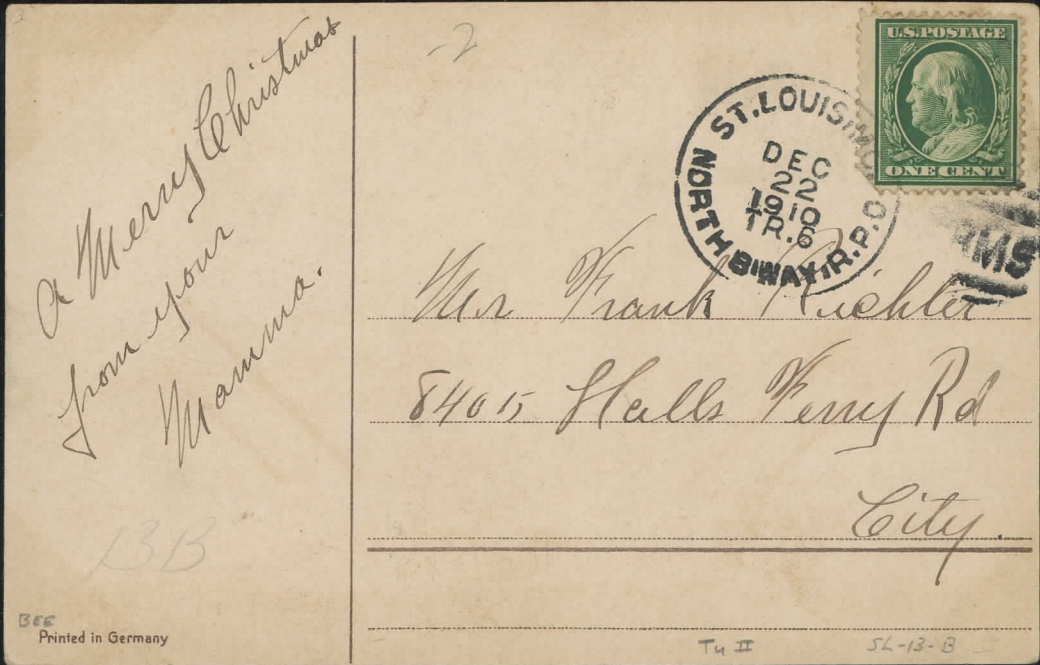 3
-2
A Merry Christmas
from your
Mamma.
BB
BEE
Printed in Germany
U.S. POSTAGE
ONE CENT
ST. LOUIS, MO.
DEC
22
1910
TR.6
NORTH B'WAY. R.P.O.
RMS
Mr Frank Richter
8405 Halls Ferry Rd
City.
Tu II
SL-13-B